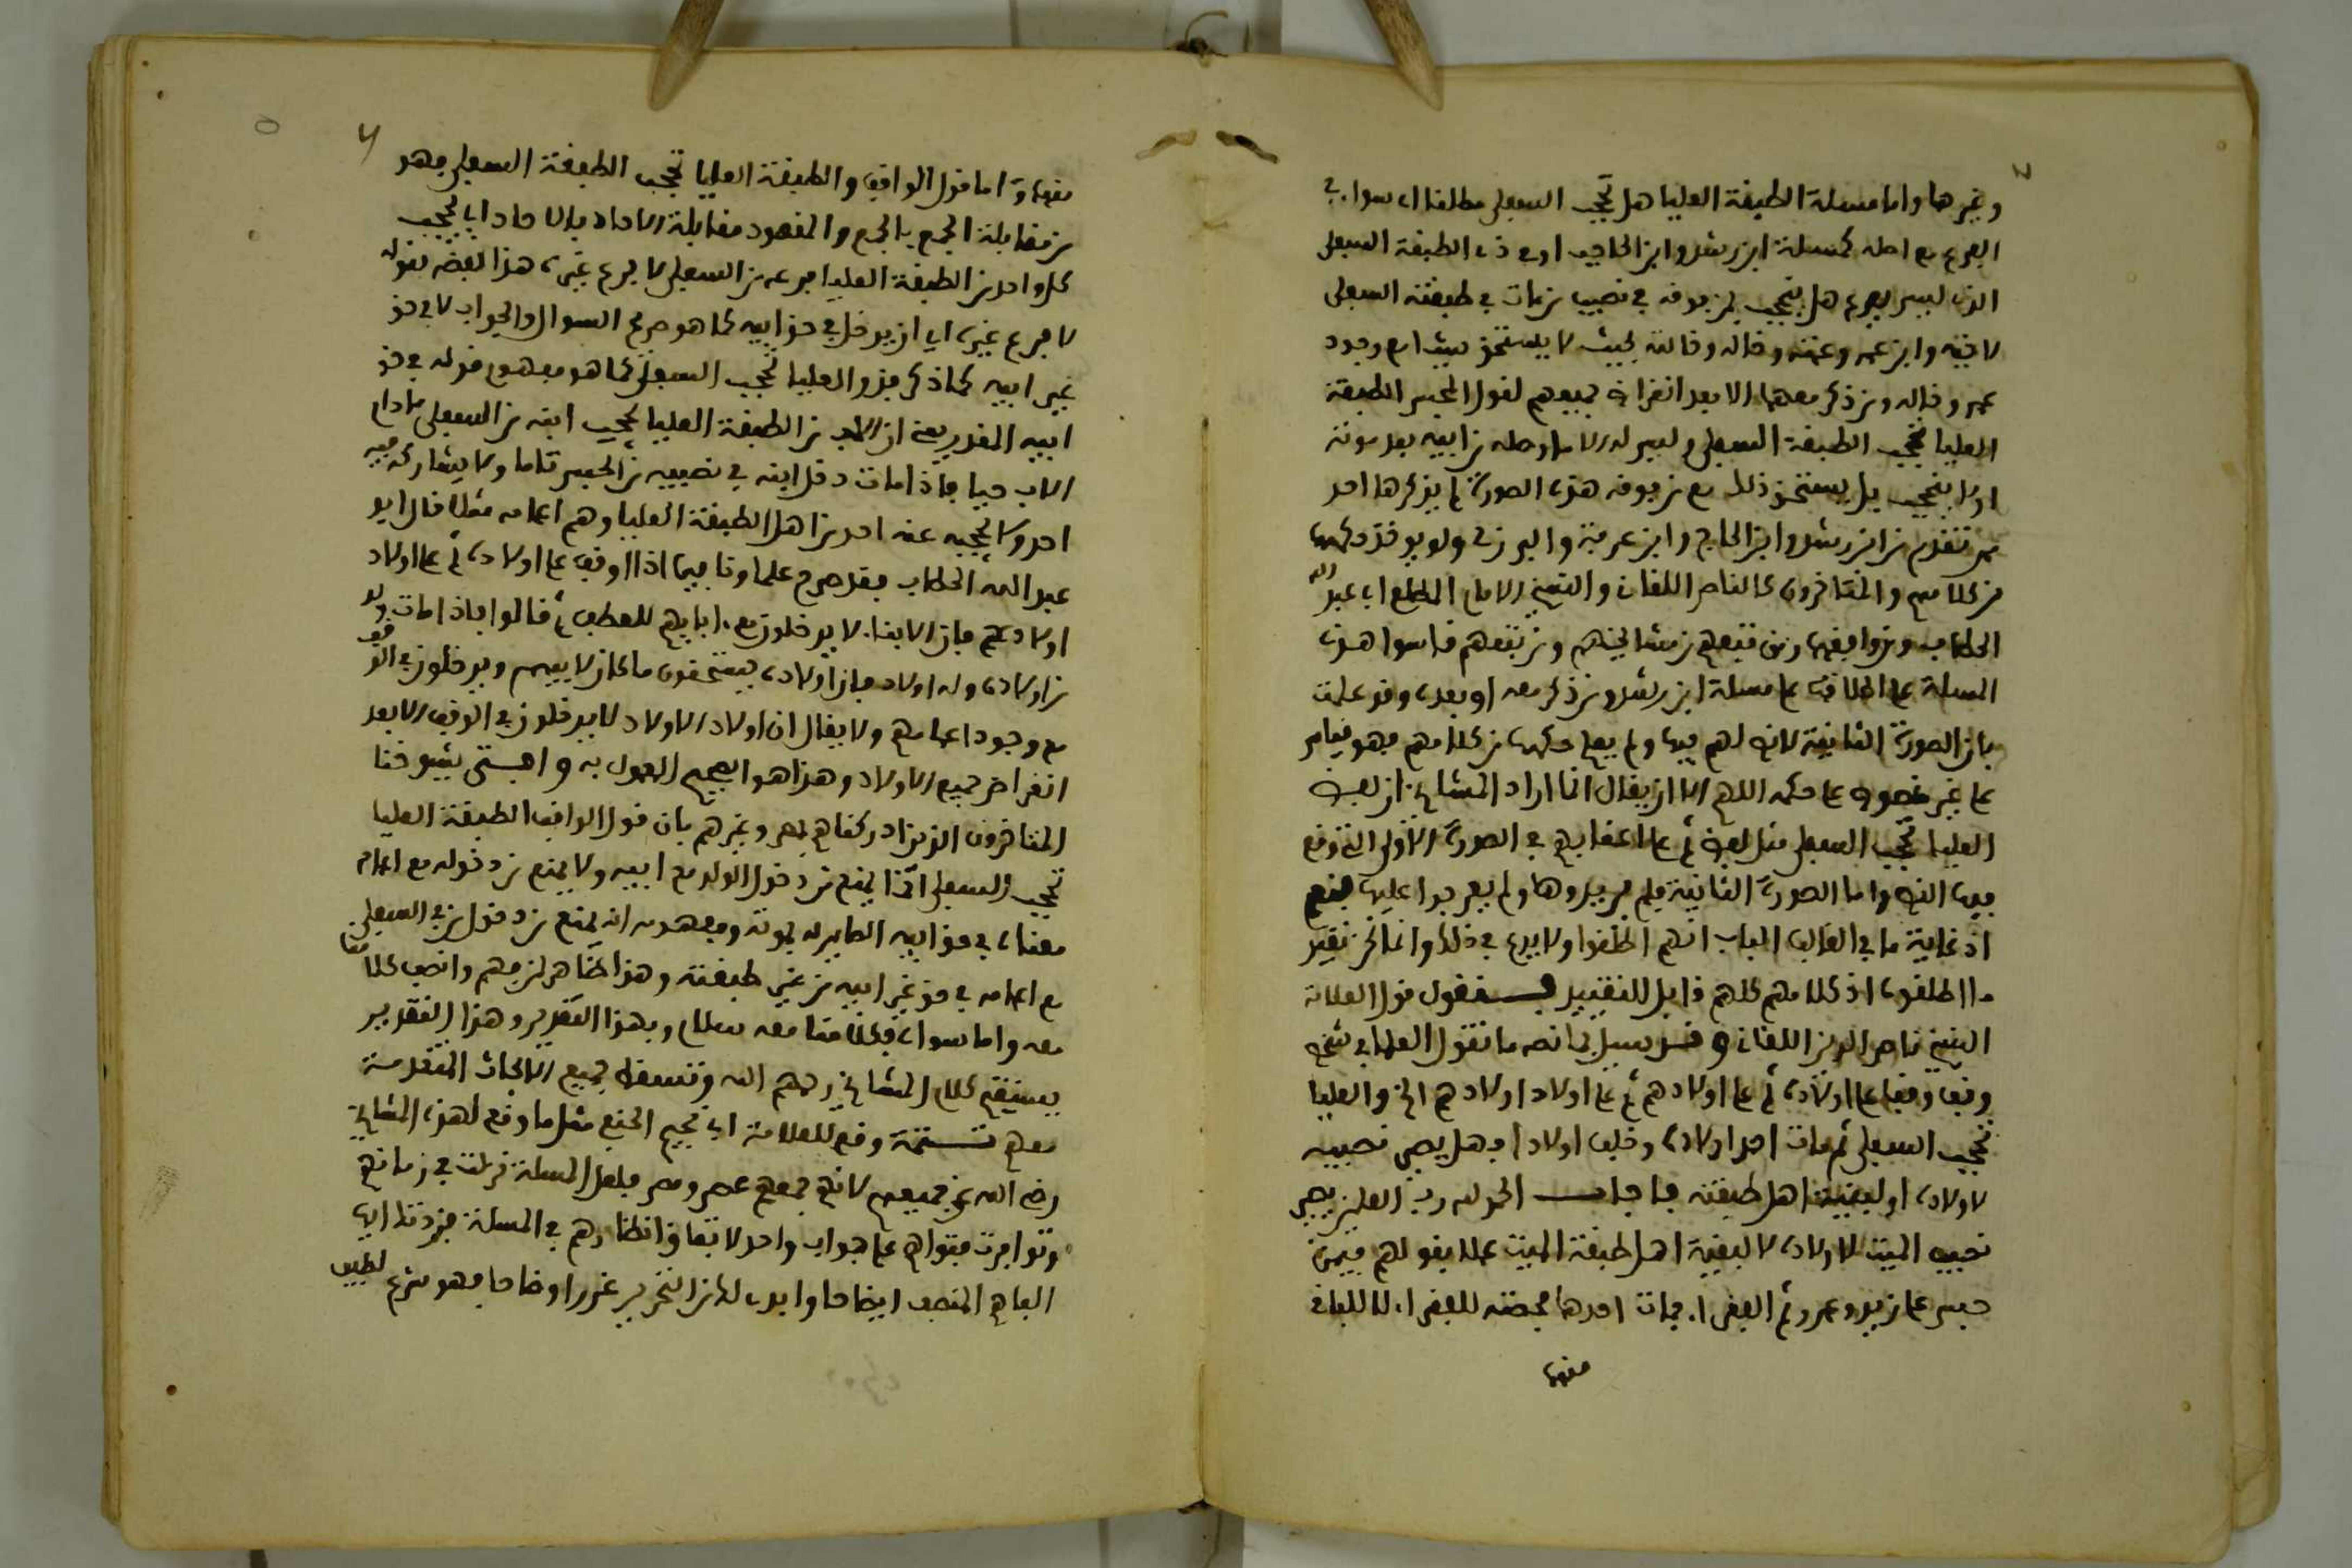 وغيرها واما مسئلة الطبقة العليا هل تحجب السفلى مطلقا اي سواء في
الفرع مع اصله كمسئلة ابن رشد وابن الحاجب او في ذي الطبقة السفلى
الذي ليس بفرع هل ينحجب بمن فوقه في نصيب من مات في طبقته السفلى
كاخيه وابن عمه وعمته وخاله وخالته بحيث لا يستحق شيئا مع وجود
عمه وخاله ومن ذكر معهما الا بعد انقراض جميعهم لقول المحبس الطبقة
العليا تحجب الطبقة السفلى وليس له الا ما وصله من ابيه بعد موته
اولا ينحجب بل يستحق ذلك مع من فوقه هذه الصورة لم يذكرها احد
ممن تقدم من ابن رشد وابن الحاج وابن عرفة والبرزلي ولا يوخذ حكمها
من كلامهم والمتاخرون كالناصر اللقاني والشيخ الامام المطلع ابي عبد الله
الحطاب ومن وافقهما ومن تبعهم من مشايخهم ومن تبعهم قاسوا هذه
المسئلة على اطلاقها على مسئلة ابن رشد ومن ذكر معه او بعده وقد علمت
بان الصورة الثانية لا نص لهم فيها ولم يعلم حكمها من كلامهم فهو قياس
على غير منصوص على حكمه اللهم الا ان يقال انما اراد المشايخ ان لفظ
العليا تحجب السفلى مثل لفظ ثم على اعقابهم في الصورة الاولى التي وقع
فيها النص واما الصورة الثانية فلم يريدوها ولم يعرجوا عليها فنعم
اذ غاية ما في الباب انهم اطلقوا ولا بدع في ذلك وانما نحن نقيد
ما اطلقوه اذ كلامهم كلهم قابل للتقييد فنقول قول العلامة
الشيخ ناصر الدين اللقاني وقد سيل بما نصه ما تقول العلما في شخص
وقف وقفا على اولاده ثم على اولادهم ثم على اولاد اولادهم الخ والعليا
تحجب السفلى ثم مات احد اولاده وخلف اولادا فهل يصير نصيبه
لاولاده او لبقية اهل طبقته فاجاب الحمد لله رب العلمين يصير
نصيب الميت لاولاده لا لبقية اهل طبقة الميت عملا بقولهم فيمن
حبس على زيد وعمرو ثم الفقراء فمات احدهما فحصته للفقراء لا للباقي
منهما
منهما واما قول الواقف والطبقة العليا تحجب الطبقة السفلى فهو
من مقابلة الجمع بالجمع والمقصود مقابلة الاحاد بالاحاد اي تحجب
كل واحد من الطبقة العليا فرعه من السفلى لا فرع غيره هذا لفظه بقوله
لا فرع غيره اي ان يدخل في حق ابيه كما هو صريح السوال والجواب لا في حق
غير ابيه كما ذكر فقوله والعليا تحجب السفلى كما هو مفهوم قوله في حق
ابيه المقدر يعني ان الاب من الطبقة العليا يحجب ابنه من السفلى ما دام
الاب حيا فاذا مات دخل ابنه في نصيبه من الحبس تاما ولا يشاركه فيه
احد ولا يحجبه عنه احد من اهل الطبقة العليا وهم اعمامه مثلا قال ابو
عبد الله الحطاب فقد صرح علماونا فيما اذا اوقف على اولاده ثم على اولاد
اولادهم بان الابناء لا يدخلون مع ابايهم للعطف بثم قالوا فاذا مات ولد
من اولاده وله اولاد فان اولاده يستحقون ما كان لابيهم ويدخلون في الوقف
مع وجود اعمامهم ولا يقال ان اولاد الاولاد لا يدخلون في الوقف الا بعد
انقراض جميع الاولاد وهذا هو الصحيح المعمول به وافتى شيوخنا
المتاخرون الذين ادركناهم بمصر وغيرهم بان قول الواقف الطبقة العليا
تحجب السفلى انما يمنع من دخول الولد مع ابيه ولا يمنع من دخوله مع اعمامه
معناه في حق ابيه الصاير له بموته ومفهومه انه يمنع من دخول من في السفلى
مع اعمامه في حق غير ابيه من غير طبقته وهذا ظاهر لمن فهم وانصف كلامنا
معه واما سواه فكلامنا معه سلام وبهذا التقرير وهذا التقدير
يستقيم كلام المشايخ رحمهم الله وتسقط جميع الابحاث المتقدمة
معهم تتمة وقع للعلامة ابن نجيم الحنفي مثل ما وقع لهذه المشايخ
رضي الله عن جميعهم لانهم جمعهم عصر ومصر فلعل المسئلة نزلت في زمانهم
وتوافرت فتواهم على جواب واحد لاتفاق انظارهم في المسئلة فجردنا ايها
الفاهم المنصف ايضاحا وابدى لها من التحرير غررا واوضاحا فهو مشرع لطيف